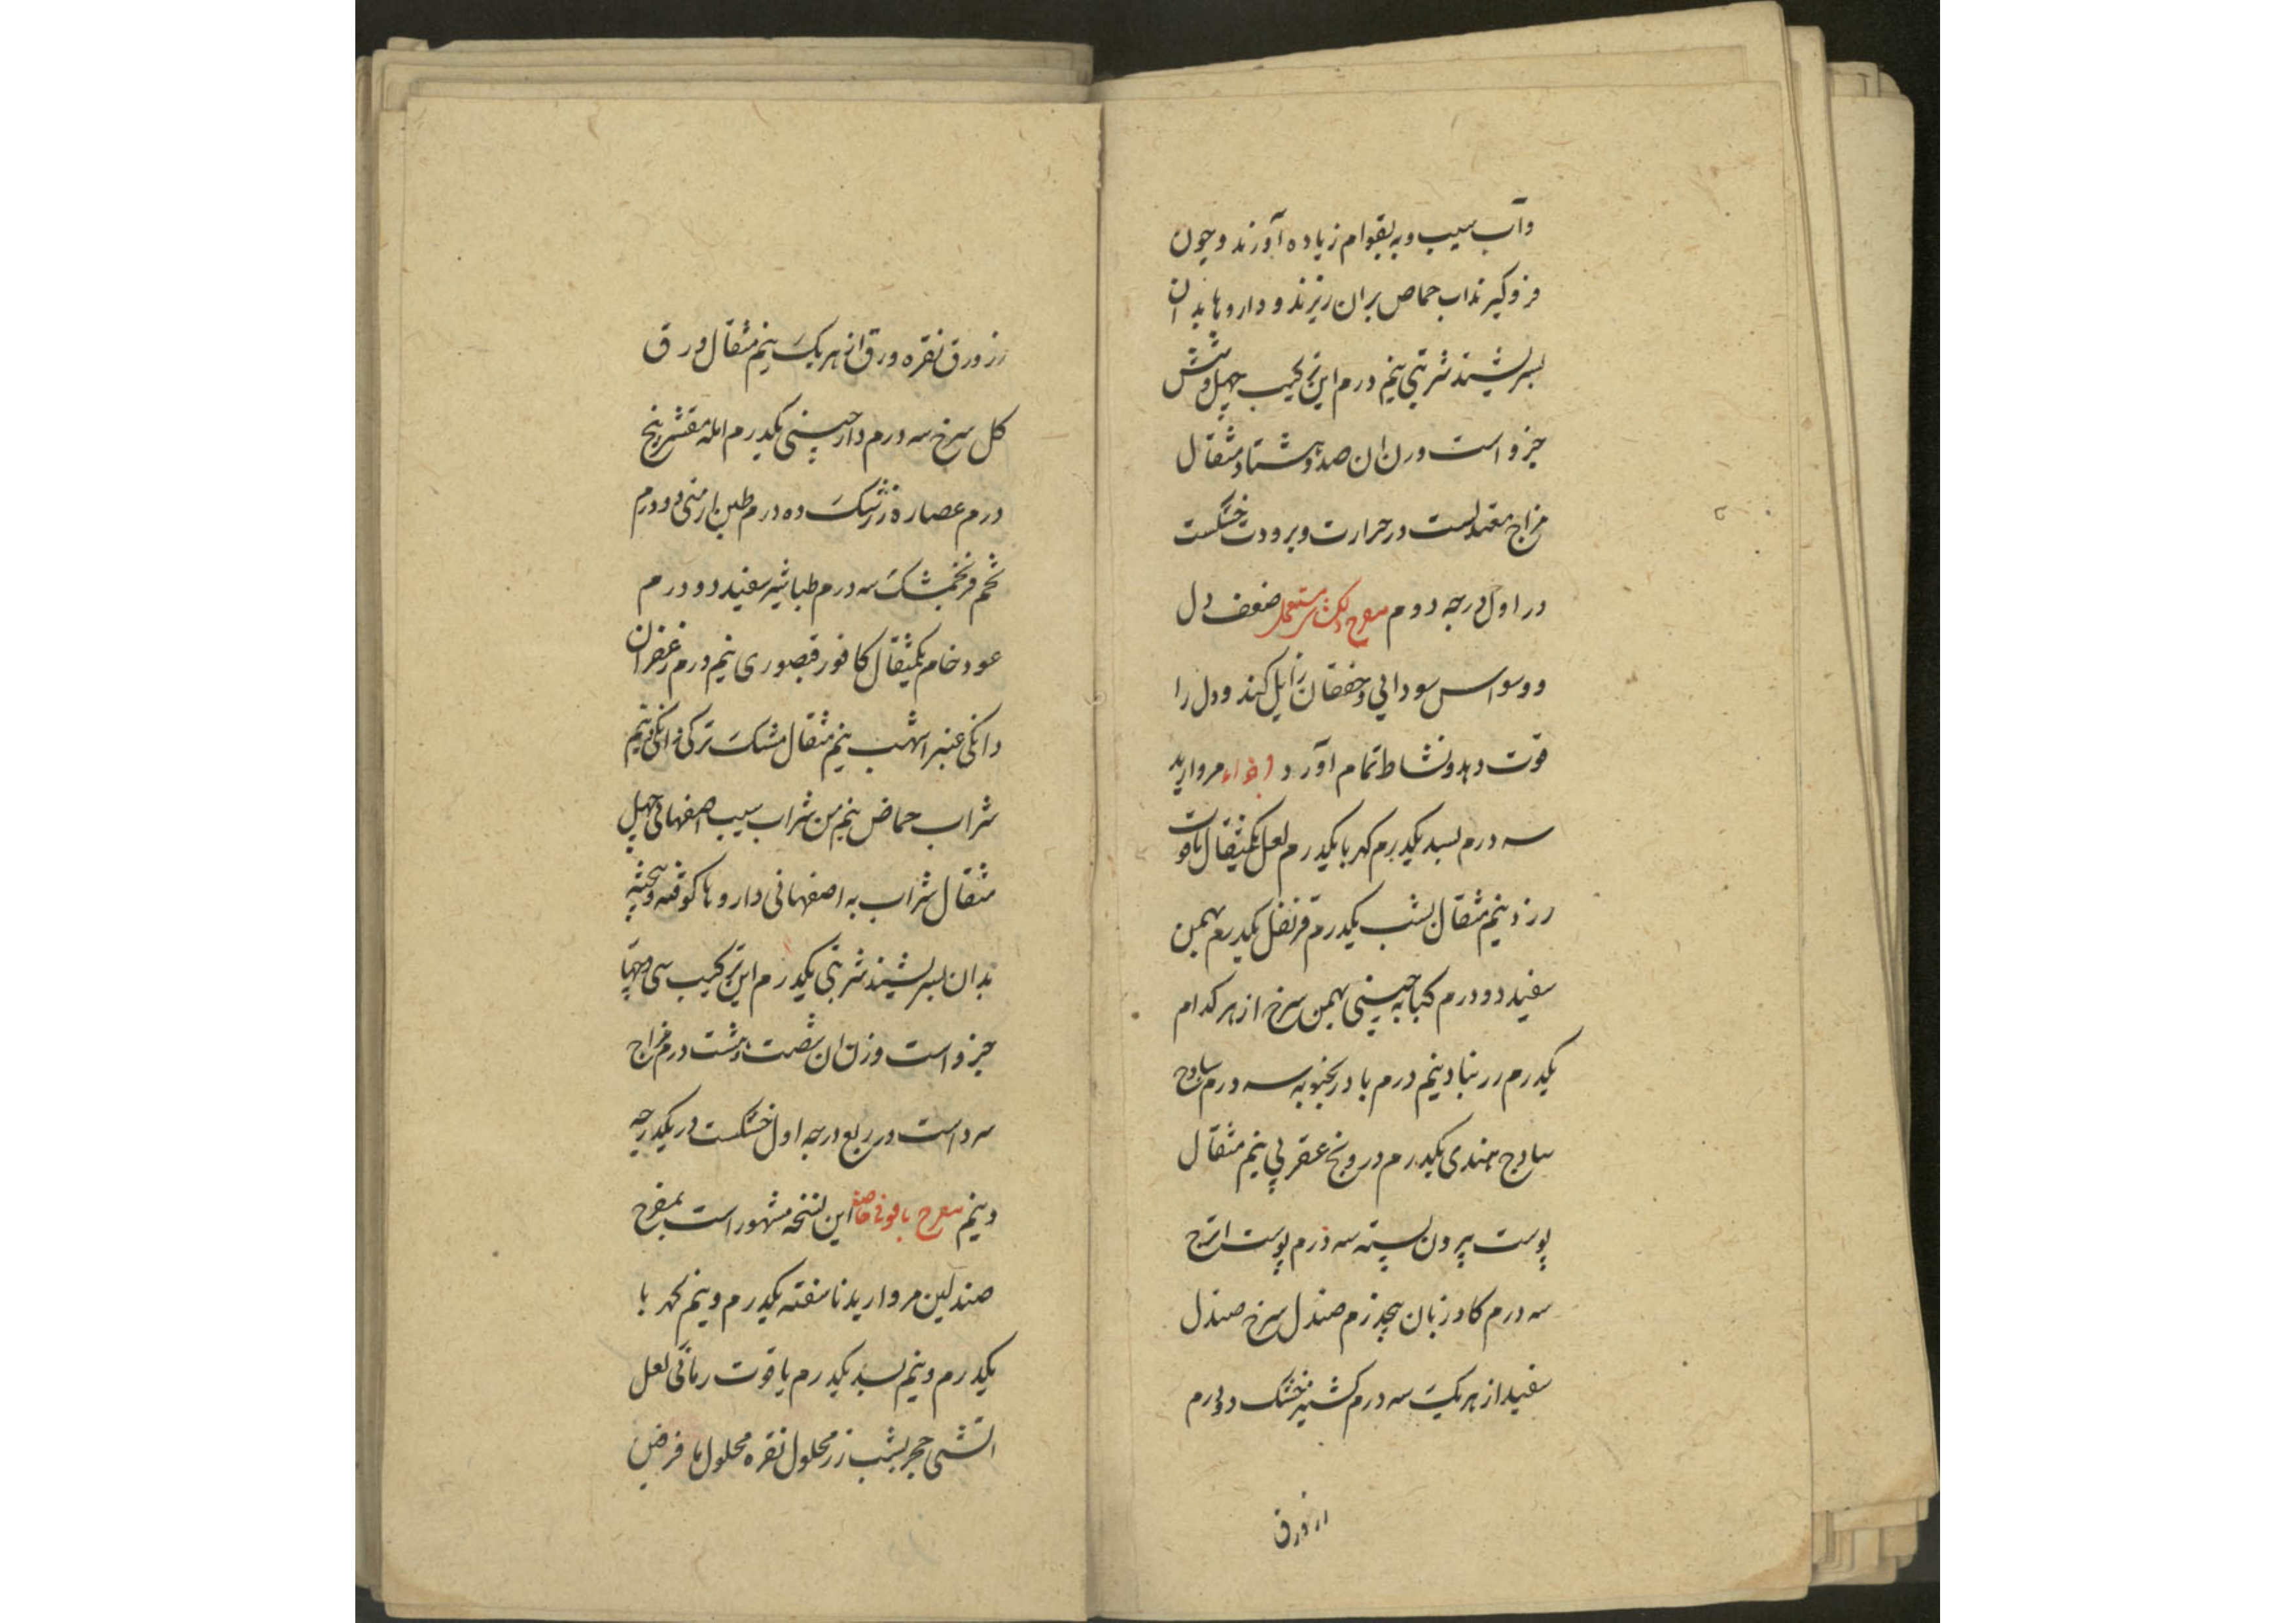 وآب سیب وبه بقوام زیاده آورند وچون
فروکیرند اب حماض بران ریزند و داروها بدان
بسرشیند شربتی نیم درم این ترکیب چهل وشش
جزو است وزن ان صد وهشتاد مثقال
مزاج معتدلست در حرارت وبرودت خشکست
در اول درجه دوم مفرح دلکش مستعمل ضعف دل
ووسواس سودایی وخفقان زایل کند ودل را
قوت دهد ونشاط تمام آورد اجزاء مروارید
سه درم بسد یکدرم کهربا یکدرم لعل یکمثقال یاقوت
زرد نیم مثقال یشب یکدرم قرنفل یکدرم بهمن
سفید دو درم کبابه چینی بهمن سرخ از هر کدام
یکدرم زرنباد نیم درم بادرنجبویه سه درم ساذج
ساذج هندی یکدرم درونج عقربی نیم مثقال
پوست بیرون پسته سه درم پوست اترج
سه درم کاوزبان پنجدرم صندل سرخ صندل
سفید از هریک سه درم کشنیز خشک دو درم
زر ورق
زر ورق نقره ورق از هریک نیم مثقال ورق
کل سرخ سه درم دارچینی یکدرم امله مقشر پنج
درم عصاره زرشک ده درم طین ارمنی دو درم
تخم فرنجمشک سه درم طباشیر سفید دو درم
عود خام یکمثقال کافور قیصوری نیم درم زعفران
دانکی عنبر اشهب نیم مثقال مشک ترکی دانکی ونیم
شراب حماض نیم من شراب سیب اصفهانی چهل
مثقال شراب به اصفهانی داروها کوفته وبیخته
بدان بسرشیند شربتی یکدرم این ترکیب سی وچهار
جزو است وزن ان شصت وهشت درم مزاج
سرد است در ربع درجه اول خشکست در یکدرجه
ونیم مفرح یاقوتی خاصه این نسخه مشهور است بمفرح
صندلین مروارید ناسفته یکدرم ونیم کهربا
یکدرم ونیم بسد یکدرم یاقوت رمانی لعل
اتشی حجر یشب زر محلول نقره محلول